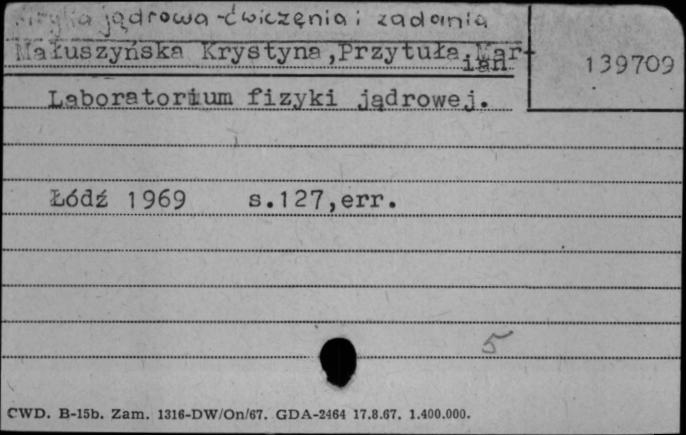 Fizyka jądrowa - ćwiczenia i zadania
Małuszyńska Krystyna, Przytuła Mar-
ian
139709
Laboratorium fizyki jądrowej.
Łódź 1969 s.127,err.
5
CWD. B-15b. Zam. 1316-DW/On/67. GDA-2464 17.8.67. 1.400.000.